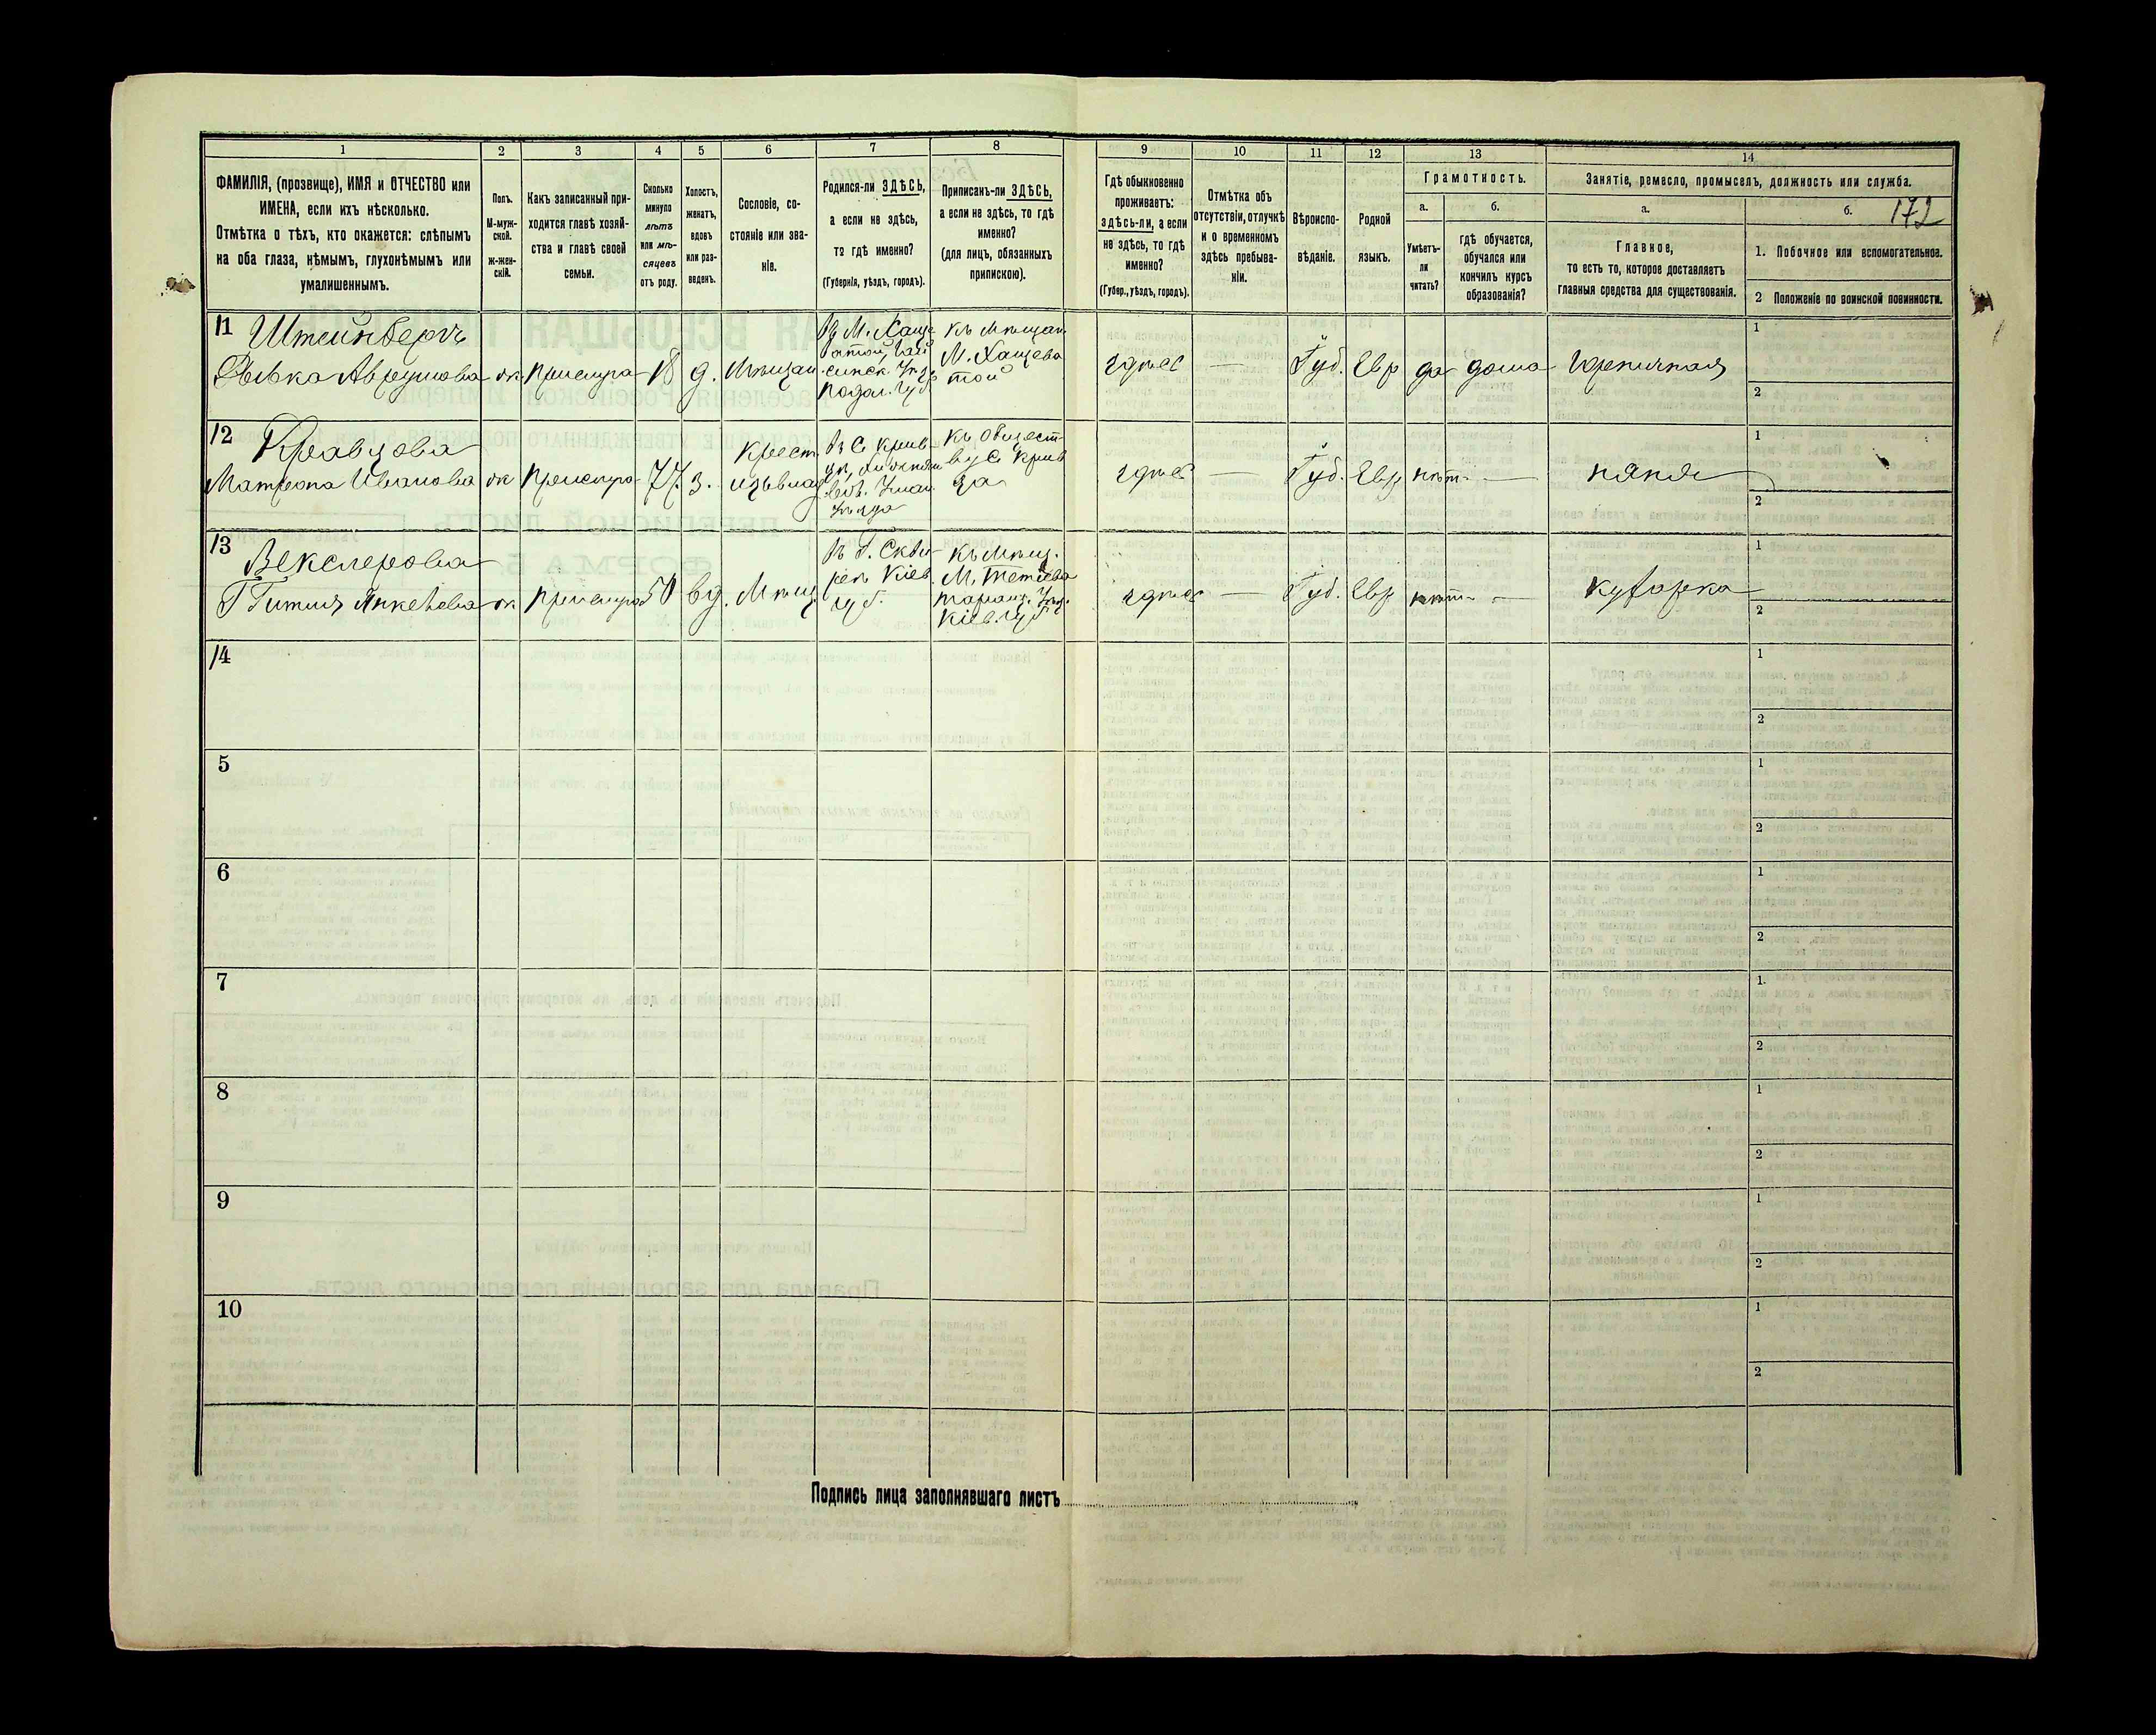 172
1 2 3 4 5 6 7 8 9 10 11 12 13 14
ФАМИЛІЯ, (прозвище), ИМЯ и ОТЧЕСТВО или
ИМЕНА, если ихъ нѣсколько.
Отмѣтка о тѣхъ, кто окажется: слѣпымъ
на оба глаза, нѣмымъ, глухонѣмымъ или
умалишеннымъ.
Полъ.
М-муж-
ской.
ж-жен-
скій.
Какъ записанный при-
ходится главѣ хозяй-
ства и главѣ своей
семьи.
Сколько
минуло
лѣтъ
или мѣ-
сяцевъ
отъ роду.
Холостъ,
женатъ,
вдовъ
или раз-
веденъ.
Сословіе, со-
стояніе или зва-
ніе.
Родился-ли ЗДѢСЬ,
а если не здѣсь,
то гдѣ именно?
(Губернія, уѣздъ, городъ).
Приписанъ-ли ЗДѢСЬ,
а если не здѣсь, то гдѣ
именно?
(для лицъ, обязанныхъ
припискою).
Гдѣ обыкновенно
проживаетъ:
здѣсь-ли, а если
не здѣсь, то гдѣ
именно?
(Губер., уѣздъ, городъ).
Отмѣтка объ
отсутствіи, отлучкѣ
и о временномъ
здѣсь пребыва-
ніи.
Вѣроиспо-
вѣданіе.
Родной
языкъ.
Грамотность.
а.
Умѣетъ-
ли
читать?
б.
гдѣ обучается,
обучался или
кончилъ курсъ
образованія?
Занятіе, ремесло, промыселъ, должность или служба.
а.
Главное,
то есть то, которое доставляетъ
главныя средства для существованія.
б.
1. Побочное или вспомогательное.
2 Положеніе по воинской повинности.
11 Штейнбергъ
Рывка ж Прислуга 18 д. Мѣщан.
къ Мѣщан.
М. Хащева
той
здѣсь — Іуд. Евр да дома Горничная
1
2
12 Кравцова
Матрона Иванова ж Прислуга 77 з.
Крест.
къ общест
ву С. Крив
ца
здѣсь — Іуд. Евр нѣтъ — няня
1
2
13 Векслерова
Гитля Янкелева ж Прислуга 50 вд. Мѣщ.
Въ Г. Скви
рѣ Кіев.
губ.
къ Мѣщ.
М. Тетіева
Таращ. Уѣз.
Кіев. губ
здѣсь — Іуд. Евр нѣтъ — кухарка
1
2
14
1
2
5
1
2
6
1
2
7
1.
2
8
1
2
9
1
2
10
1
2
Подпись лица заполнявшаго листъ